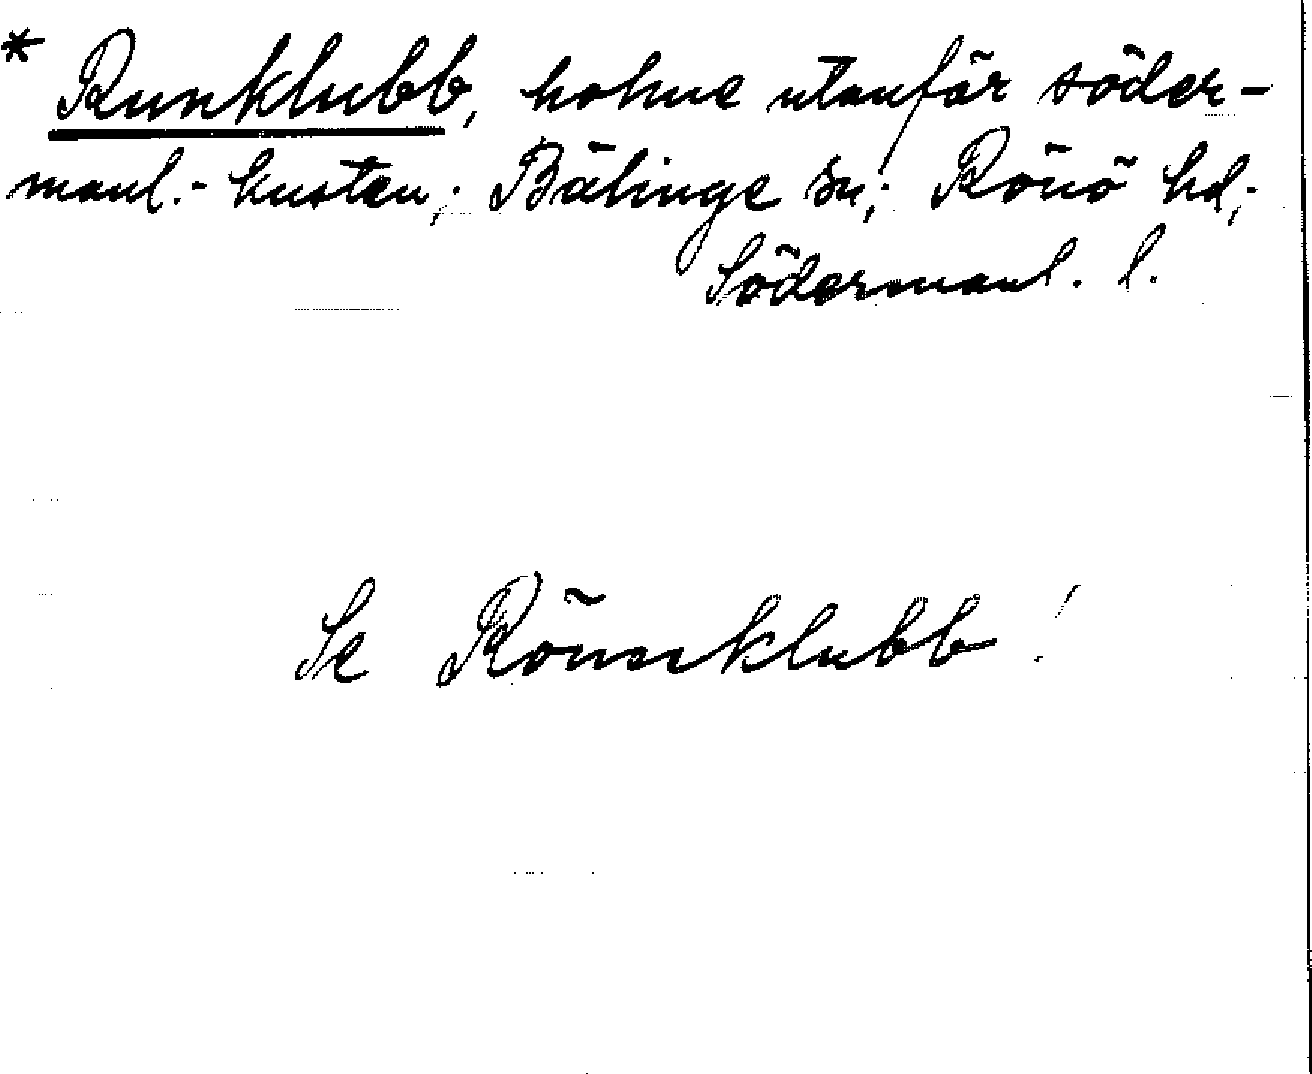 * Runklubb, holme utanför söder-
manl.-kusten; Bälinge sn; Rönö hd;
Södermanl. l.
Se Rönnklubb!